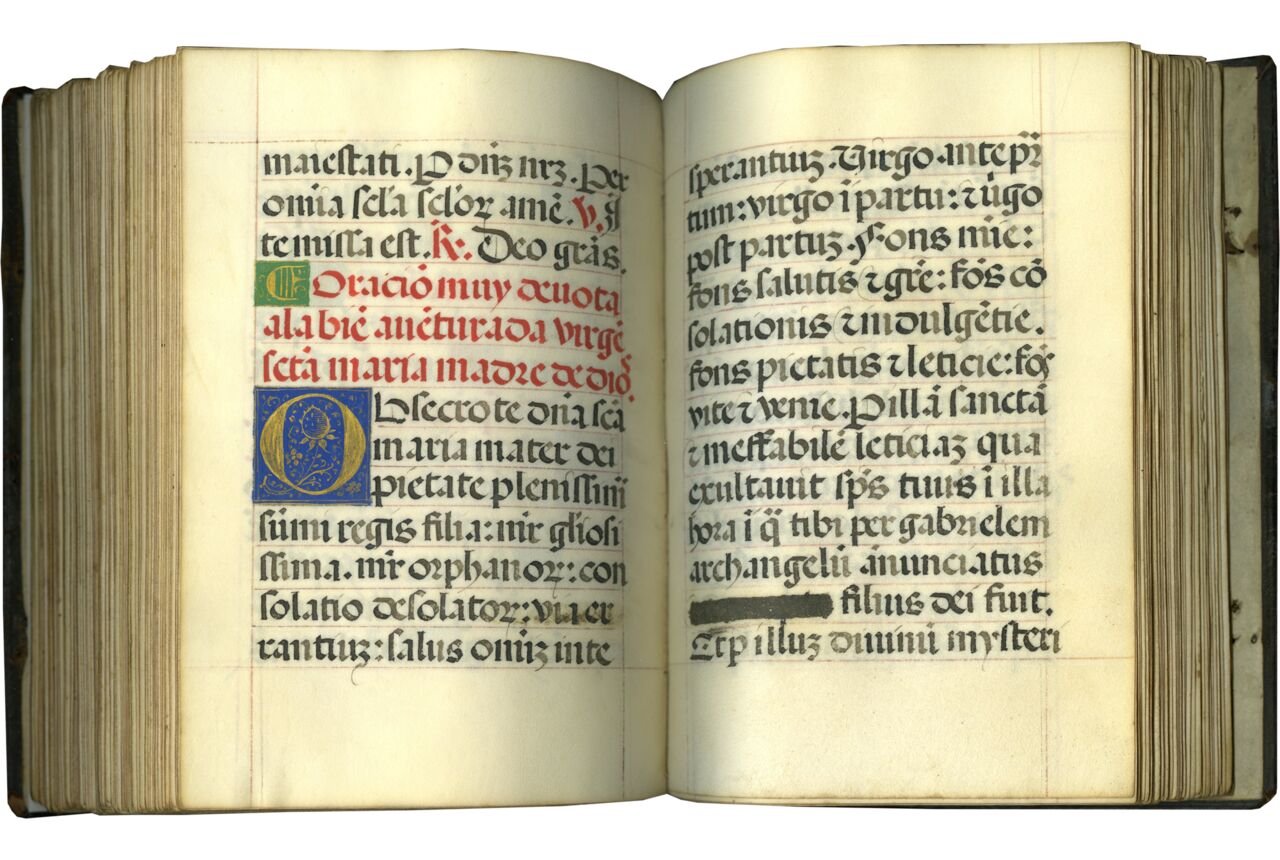 maiestati. P dn̄ꝫ nrꝫ. Per
om̄ia sc̄la sc̄loꝝ amē. V. J
te missa est. R. Deo grās.
Oraciō muy deuota
ala biē auēturada virgē
sctā maria madre de dios.
Obsecro te dn̄a scā
maria mater dei
pietate plenissim̄
sūmi regis filia: mr̄ gl̄iosi
ssima. mr̄ orphanoꝝ: con
solatio desolatoꝝ: via er
rantiuꝫ: salus om̄iꝫ in te
sperantiuꝫ. Uirgo ante pꝛ̄
tum: virgo ī partu: ⁊ v̄go
post partuꝫ. Fons mīe:
fons salutis ⁊ gr̄e: fōs cō
solationis ⁊ indulgētie.
fons pietatis ⁊ leticie: fōs
vite ⁊ venie. P illā sanctā
⁊ ineffabilē leticiaꝫ qua
exultauit sp̄s tuus ī illa
hora ī q̄ tibi per gabrielem
archangelū ānunciatus
filius dei fuit.
Et p illuꝫ diuinū mysteri